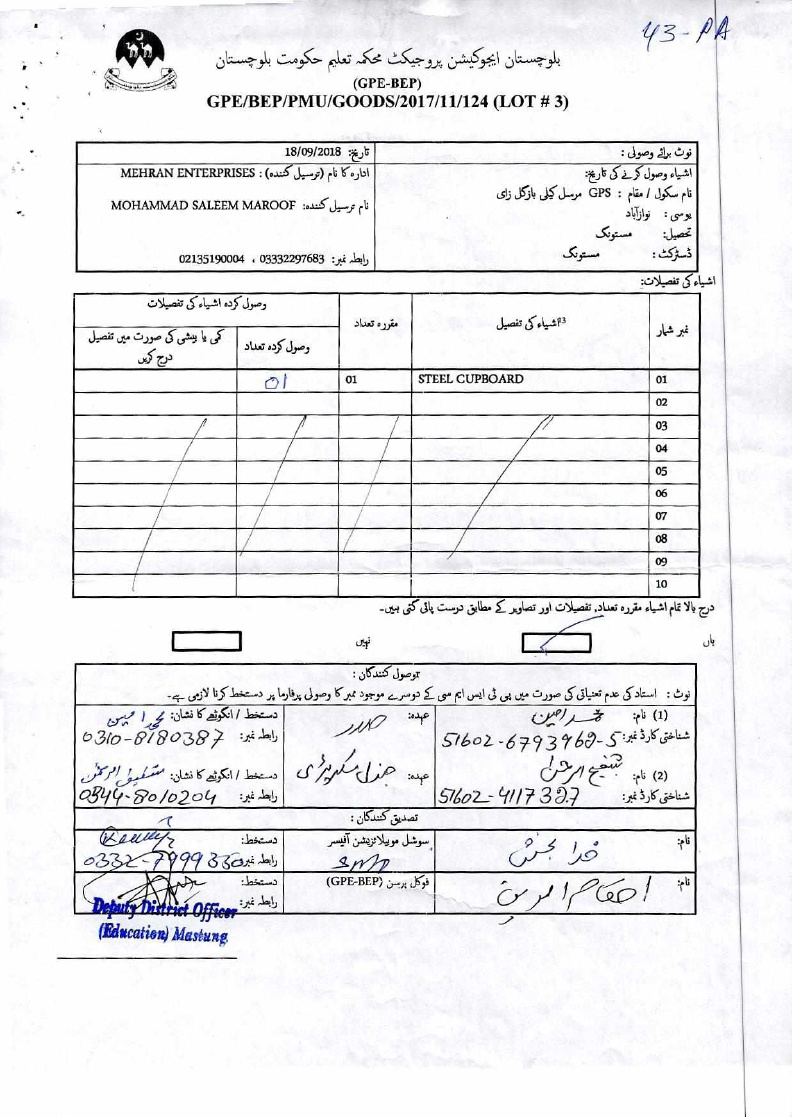 43-PA
بلوچستان ایجوکیشن پروجیکٹ محکمہ تعلیم حکومت بلوچستان
(GPE-BEP)
GPE/BEP/PMU/GOODS/2017/11/124 (LOT # 3)
نوٹ برائے وصولی :
تاریخ: 18/09/2018
اشیاء وصول کرنے کی تاریخ:
ادارہ کا نام (ترسیل کنندہ) : MEHRAN ENTERPRISES
نام سکول / مقام : GPS مرسل کیلی بازگل زای
نام ترسیل کنندہ: MOHAMMAD SALEEM MAROOF
یوسی : نوازآباد
تحصیل: مستونگ
ڈسٹرکٹ : مستونگ
رابطہ نمبر: 03332297683 ، 02135190004
اشیاء کی تفصیلات:
نمبر شمار
اشیاء کی تفصیل
مقررہ تعداد
وصول کردہ اشیاء کی تفصیلات
وصول کردہ تعداد
کمی یا بیشی کی صورت میں تفصیل درج کریں
01 STEEL CUPBOARD 01 01
02
03
04
05
06
07
08
09
10
درج بالا تمام اشیاء مقررہ تعداد، تفصیلات اور تصاویر کے مطابق درست پائی گئی ہیں۔
ہاں
نہیں
وصول کنندگان :
نوٹ : استاد کی عدم تعیناتی کی صورت میں پی ٹی ایس ایم سی کے دوسرے موجود ممبر کا وصولی پرفارما پر دستخط کرنا لازمی ہے۔
(1) نام: محمد امین
عہدہ: صدر
دستخط / انگوٹھے کا نشان: محمد امین
شناختی کارڈ نمبر: 51602-6793969-5
رابطہ نمبر: 0310-8180387
(2) نام:
عہدہ: جنرل سیکریٹری
دستخط / انگوٹھے کا نشان:
شناختی کارڈ نمبر:
رابطہ نمبر: 0344-8010204
تصدیق کنندگان :
نام: خدا بخش
سوشل موبیلائزیشن آفیسر
دستخط:
رابطہ نمبر: 0332-7999330
نام:
فوکل پرسن (GPE-BEP)
دستخط:
رابطہ نمبر:
Deputy District Officer
(Education) Mastung